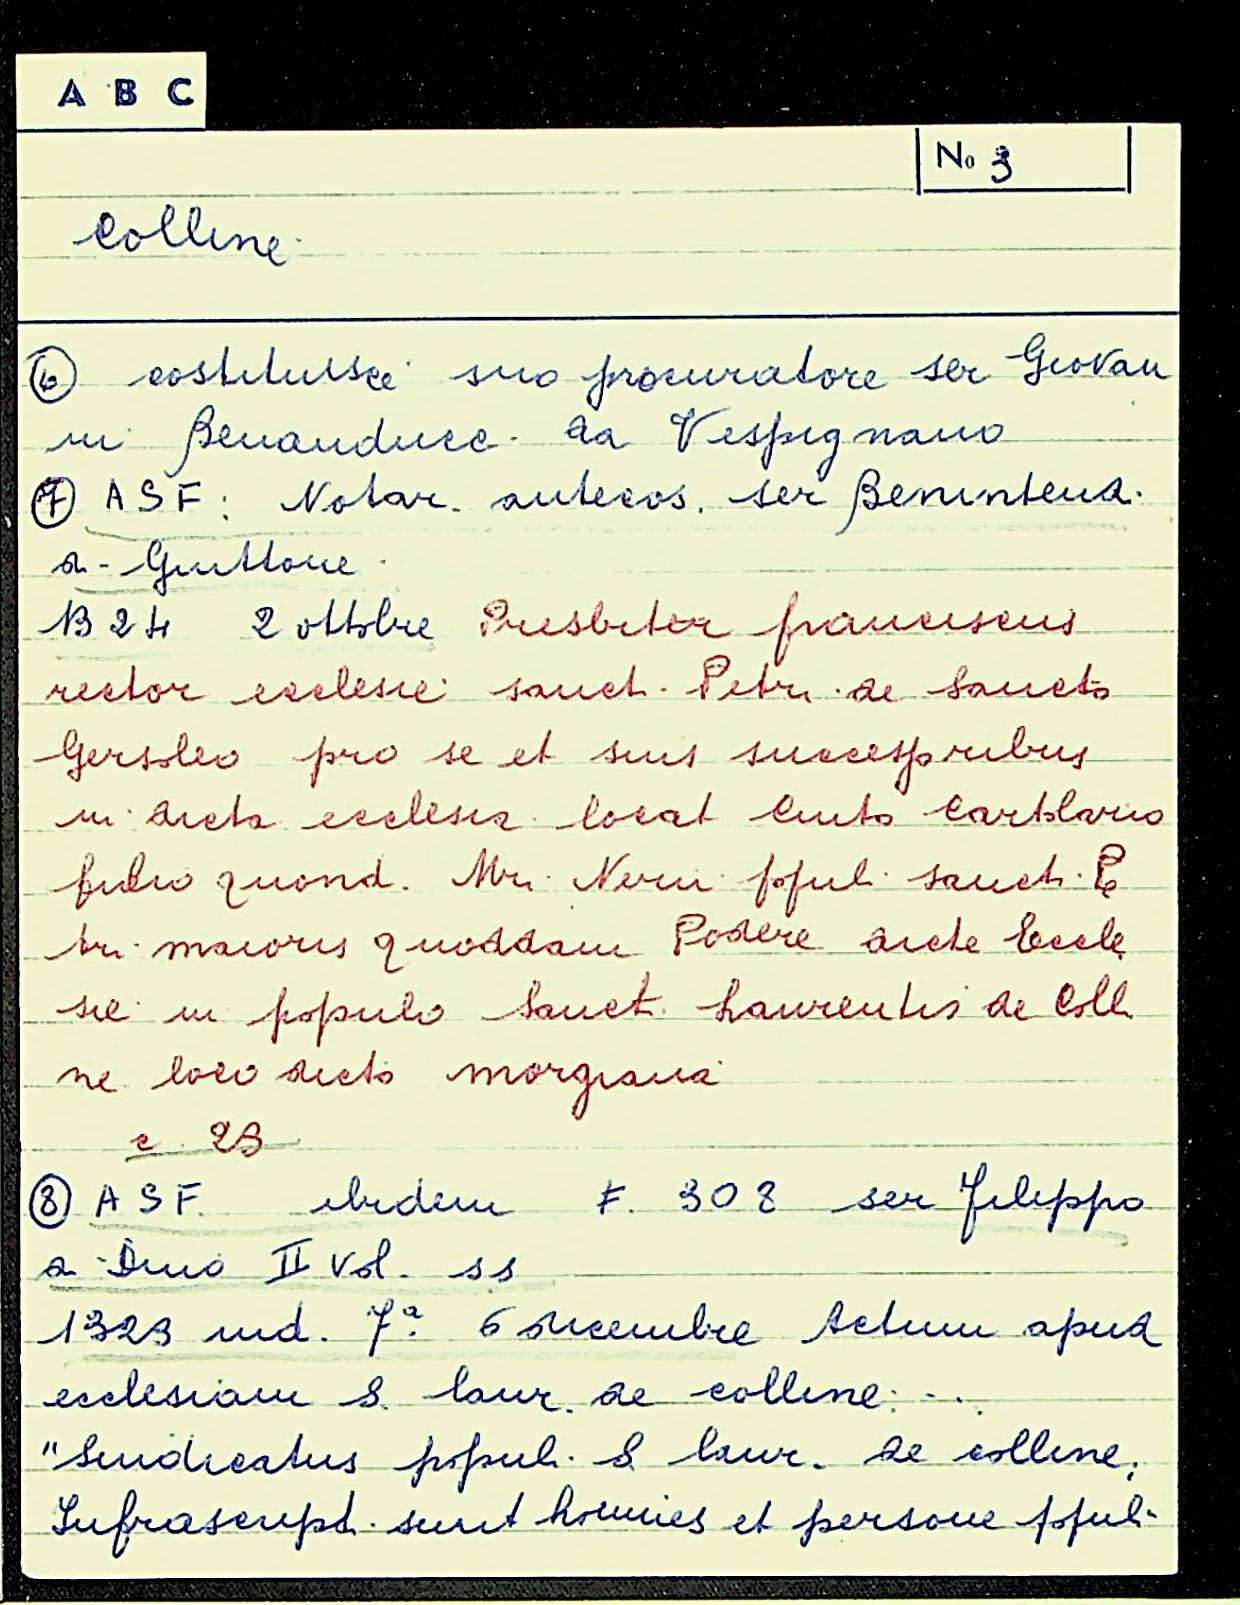 A B C
No 3
Colline
⑥ costituisce suo procuratore ser Giovan
ni Benanducc. da Vespignano
⑦ ASF: Notar. antecos. ser Benintend.
d. Guittone
B 24 2 ottobre Presbiter franciscus
rector ecclesie sanct. Petri de Sancto
Gersoleo pro se et suis successoribus
in dicta ecclesia locat Cinto Cartolario
filio quond. Mri. Nerii popul. sanct. Pe
tri maioris quoddam Podere dicte Eccle
sie in populo Sanct. Laurentis de Colli
ne loco dicto morgiana
c. 23
⑧ ASF. ibidem F. 308 ser Filippo
d. Dino II vol. ss
1323 ind. 7ª. 6 dicembre Actum apud
ecclesiam S. laur. de colline. ...
"Sindicatus popul. S laur. de colline.
Infrascript. sunt homines et persone popul.